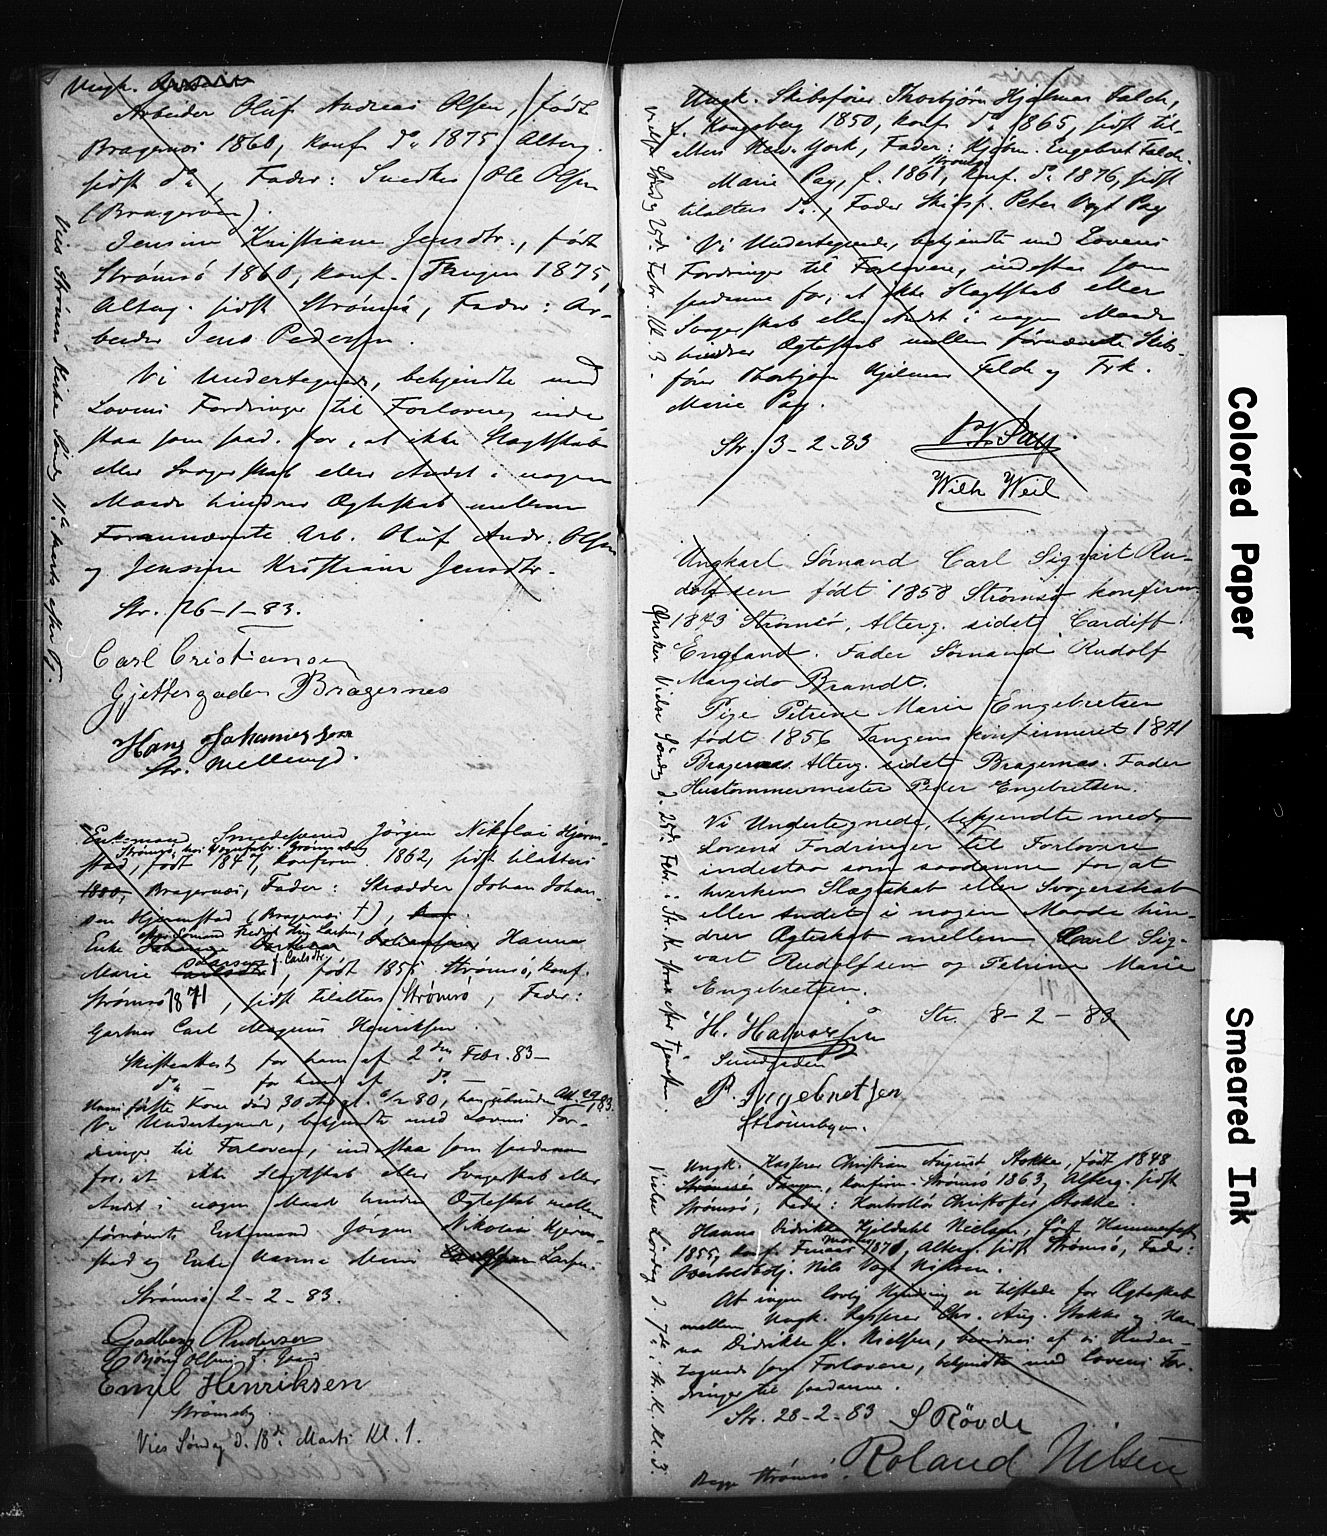 Ungk.
Arbeider Oluf Andreas Olsen, født
Bragernæs 1860, konf. do. 1875, Alterg.
sidst do., Fader: Snedker Ole Olsen
(Bragernæs).
Jensine Kristiane Jensdtr., født
Strømsö 1860, konf. Tangen 1875,
Alterg. sidst Strömsö, Fader: Ar-
beider Jens Pedersen.
Vi Undertegnede, bekjendte med
Lovens Fordringer til Forlovere, inde-
staa som saad. for, at ikke Slægtskab
eller Svogerskab eller Andet i nogen
Maade hindrer Ægteskab mellem
Forannævnte Arb. Oluf Andr. Olsen
og Jensine Kristiane Jensdtr.
Str. 26-1-83.
Carl Cristiansen
Gjettergaden Bragernes
Hans Johannessen
Str.
Vies Strömsö Kirke Søndag 11te Marts efter Tj.
Enkemand Smedesvend Jörgen Nikolai Hjerm-
stad, født 1847, Strömsö, konfirm. 1862, sidst tilalters
Bragernæs, Fader: Skrædder Johan Johan-
sen Hjermstad (Bragernæs †),
Enke Hanna
Marie Larsen f. Carlsdtr, født 1855 Strömsö, konf.
Strömsö 1871, sidst tilalters Strömsö, Fader:
Gartner Carl Magnus Henriksen.
Skifteattest for ham af 2den Febr. 83 -
do. for hende af do. -
Vi Undertegnede, bekjendte med Lovens For-
dringer til Forlovere, indestaa som saadanne
for, at ikke Slægtskab eller Svogerskab eller
Andet i nogen Maade hindrer Ægteskab mellem
förnævnte Enkemand Jörgen Nikolai Hjerm-
stad og Enke Hanna Marie Larsen.
Strömsö 2-2-83.
Godberg Andersen
Emil Henriksen
Strømsby.
Vies Søndag d. 18de Marts Kl. 1.
Ungk. Skibsfører Thorbjørn Hjalmar Falch,
f. Kongsberg 1850, konf. do. 1865, sidst til-
alters New-York, Fader: Kjøbm. Engebret Falch.
Marie Pay, f. 1861 Strömsö, konf. do. 1876, sidst
tilalters do., Fader Skibsf. Peter Vogt Pay
Vi Undertegnede, bekjendte med Lovens
Fordringer til Forlovere, indestaa som
saadanne for, at ikke Slægtskab eller
Svogerskab eller Andet i nogen Maade
hindrer Ægteskab mellem förnævnte Skibs-
förer Thorbjørn Hjalmar Falch og Frk.
Marie Pay.
Str. 3-2-83
P. V. Pay
Wilh Weil
Vielse Søndag 25de Febr. Kl. 3.
Ungkarl Sømand Carl Sigvart Ru-
dolfsen født 1858 Strømsø konfirm.
1873 Strømsö, Alterg. sidst Cardiff
England. Fader Sømand Rudolf
Margido Brandt.
Pige Petrine Marie Engebretsen
født 1856 Tangen konfirmeret 1871
Bragernæs. Alterg. sidst Bragernæs. Fader
Hustømmermester Peder Engebretsen.
Vi Undertegnede, bekjendte med
Lovens Fordringer til Forlovere
indestaa som saadanne for at
hverken Slægtskab eller Svogerskab
eller Andet i nogen Maade hin-
drer Ægteskab mellem Carl Sig-
vart Rudolfsen og Petrine Marie
Engebretsen.
Str. 8-2-83.
H. Halvorsen
P. Ingebretsen
Strömsbyen.
Ønsker Vielse Søndag d. 25de Febr. i Str. K. strax efter Tjenesten.
Ungk. Kasper Christian August Stokke, født 1848
Tangen, konfirm. Strømsö 1863, Alterg. sidst
Strömsö, Fader: Kontrollör Christoffer Stokke.
Hanna Didrikke Kjeldahl Nielsen, født Hammerfest
1855, konf. 1870, Alterg. sidst Strømsö, Fader:
Nils Vogt Nielsen.
At ingen lovlig Hindring er tilstede for Ægteskab
mellem Ungk. Kasper Chr. Aug. Stokke og Han-
na Didrikke K. Nielsen, bevidnes af vi Under-
tegnede som Forlovere, bekjendte med Lovens For-
dringer til saadanne.
Str. 28-2-83
S Røvde
Roland Nilsen
Begge Strömsö.
Vielse Lördag d. 7de i Str. K. Kl. 3.
Colored Paper
Smeared Ink